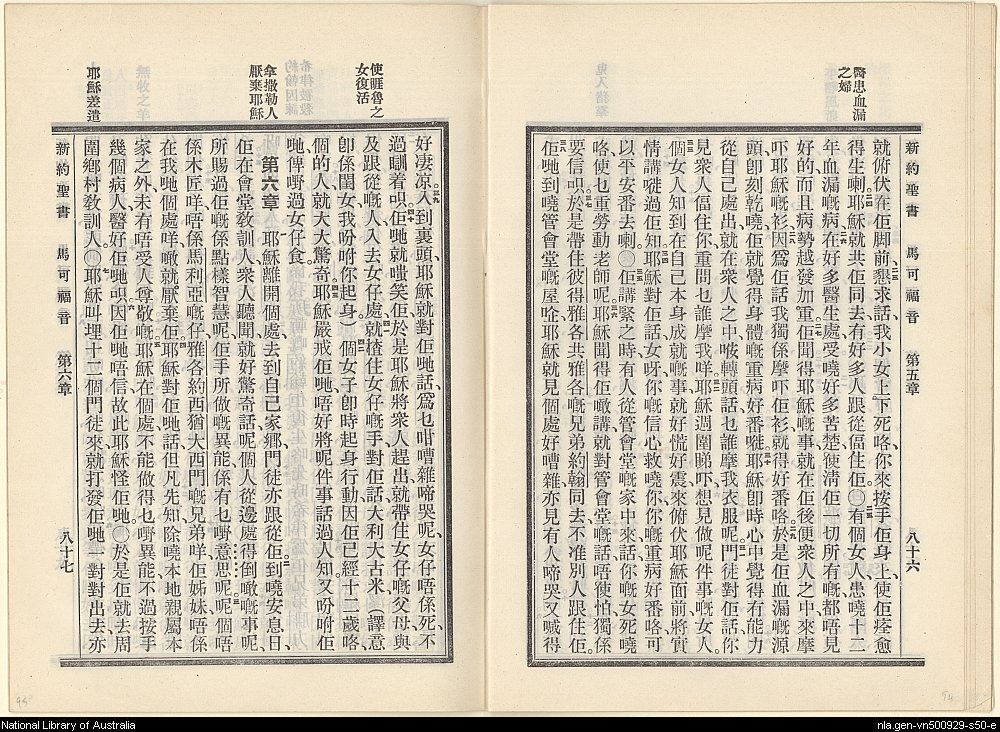 新約聖書 馬可福音 第五章 八十六
醫患血漏
之婦
就俯伏在佢脚前懇求話我小女上下死咯你來按手佢身上使佢痊愈
得生喇耶穌就共佢同去有好多人跟從偪住佢有個女人患嘵十二
年血漏嘅病在好多醫生處受嘵好多苦楚使淸佢一切所有嘅都唔見
好的而且病勢越發加重佢聞得耶穌嘅事就在佢後便衆人之中來摩
吓耶穌嘅衫因爲佢話我獨係摩吓佢衫就得好番咯於是佢血漏嘅源
頭卽刻乾嘵佢就覺得身體嘅重病好番嘥耶穌卽時心中覺得有能力
從自己處出就在衆人之中轉頭話乜誰摩我衣服呢門徒對佢話你
見衆人偪住你重問乜誰摩我咩耶穌週圍睇吓想見做呢件事嘅女人
個女人知到在自己本身成就嘅事就好慌好震來俯伏耶穌面前將實
情講嘥過佢知耶穌對佢話女呀你嘅信心救嘵你你嘅重病好番咯可
以平安番去喇佢講緊之時有人從管會堂嘅家中來話你嘅女死嘵
咯使乜重勞動老師呢耶穌聞得佢噉講就對管會堂嘅話唔使怕獨係
要信呮於是帶住彼得雅各共雅各嘅兄弟約翰同去不准別人跟住佢
佢哋到嘵管會堂嘅屋唫耶穌就見個處好嘈雜亦見有人啼哭又喊得
使睚魯之
女復活
拿撒勒人
厭棄耶穌
耶穌差遣
好凄凉入到裏頭耶穌就對佢哋話爲乜咁嘈雜啼哭呢女仔唔係死不
過瞓着呮佢哋就嗤笑佢於是耶穌將衆人趕出就帶住女仔嘅父母與
及跟從嘅人入去女仔處就揸住女仔嘅手對佢話大利大古米（譯意
卽係閨女我吩咐你起身）個女子卽時起身行動因佢已經十二歲咯
個的人就大大驚奇耶穌嚴戒佢哋唔好將呢件事話過人知又吩咐佢
哋俾嘢過女仔食
第六章 耶穌離開個處去到自己家鄕門徒亦跟從佢到嘵安息日
佢在會堂敎訓人衆人聽聞就好驚奇話呢個人從邊處得倒噉嘅事呢
所賜過佢嘅係點樣智慧呢佢手所做嘅異能係有乜嘢意思呢呢個唔
係木匠咩唔係馬利亞嘅仔雅各約西猶大西門嘅兄弟咩佢姊妹唔係
在我哋個處咩噉就厭棄佢耶穌對佢哋話但凡先知除嘵本地親屬本
家之外未有唔受人尊敬嘅耶穌在個處不能做得乜嘢異能不過按手
幾個病人醫好佢哋呮因佢哋唔信故此耶穌怪佢哋於是佢就去周
圍鄕村敎訓人耶穌叫埋十二個門徒來就打發佢哋一對對出去亦
新約聖書 馬可福音 第六章 八十七
National Library of Australia
nla.gen-vn500929-s50-e